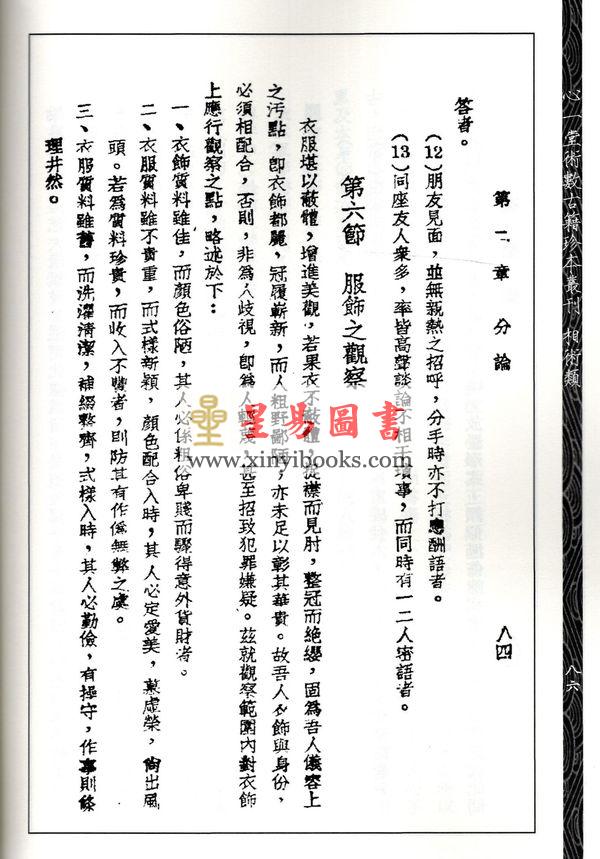 心一堂術數古籍珍本叢刊 相術類
八六
第二章 分論
八四
答者。
(12)朋友見面，並無親熱之招呼，分手時亦不打應酬語者。
(13)同座友人衆多，率皆高聲談論不相干瑣事，而同時有一二人密語者。
第六節 服飾之觀察
衣服堪以蔽體，增進美觀，若果衣不蔽體，從襟而見肘，整冠而絶纓，固爲吾人儀容上
之汚點，卽衣飾都麗，冠履嶄新，而人粗野鄙陋，亦未足以彰其華貴。故吾人衣飾與身份，
必須相配合，否則，非爲人歧視，卽爲人輕蔑，甚至招致犯罪嫌疑。茲就觀察範圍內對衣飾
上應行觀察之點，略述於下：
一、衣飾質料雖佳，而顏色俗陋，其人必係粗俗卑賤而驟得意外貨財者。
二、衣服質料雖不貴重，而式樣新穎，顏色配合入時，其人必定愛美，慕虛榮，尙出風
頭。若爲質料珍貴，而收入不豐者，則防其有作係無弊之處。
三、衣服質料雖舊，而洗濯清潔，補綴整齊，式樣入時，其人必勤儉，有操守，作事則條
理井然。
星易圖書
www.xinyibooks.com